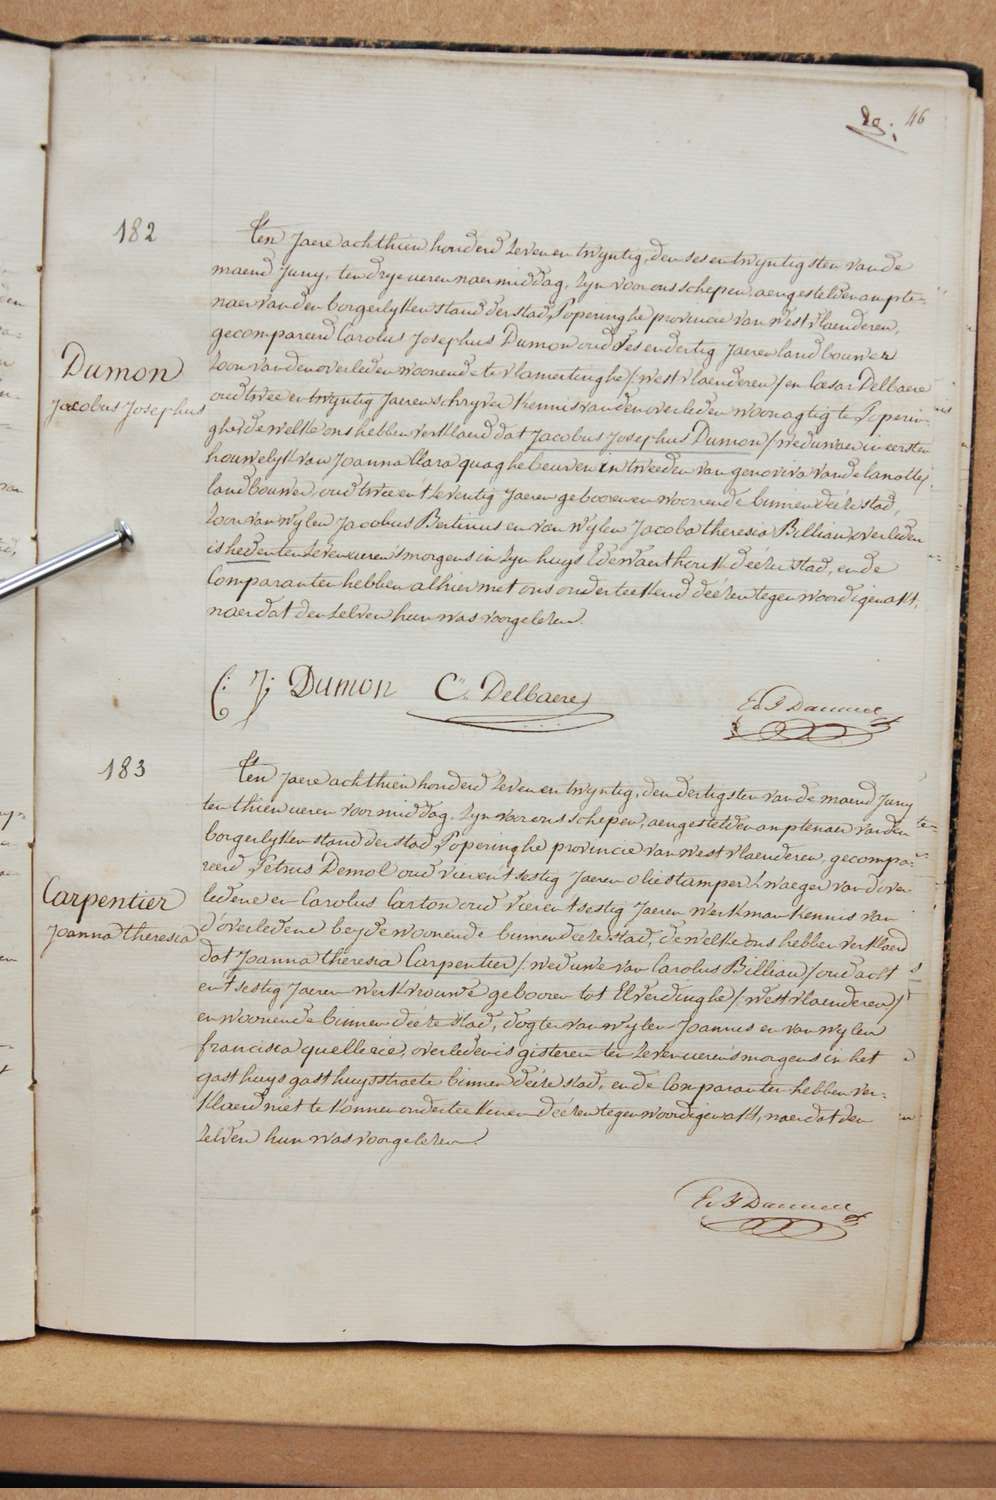 46
182
Dumon
Jacobus Josephus
Ten Jaere achthien honderd zeven en twyntig, den sesentwyntigsten van de
maend Juny, ten drye ueren naermiddag, zyn voor ons schepen, aengestelden ampte-
naer van den borgerlyken stand der stad Poperinghe provincie van Westvlaenderen,
gecompareerd Carolus Josephus Dumon oud sesendertig Jaeren landbouwer
zoon van den overleden woonende te vlamertinghe /:westvlaenderen/ en Cæsar Delbaere
oud twee en twyntig Jaeren schryver kennis van den overleden woonagtig te Poperin-
ghe de welke ons hebben verklaerd dat Jacobus Josephus Dumon /:weduwaer in eersten
houwelyk van Joanna Clara quaghebeur en in tweeden van genoviva vandelanotte/
landbouwer, oud twee en t'seventig Jaeren geboren en woonende binnen deéze stad,
zoon van wylen Jacobus Bertinus en van wylen Jacoba theresia Billiau, overleden
is heden ten zeven ueren s'morgens in zyn huys deézer stad, en de
Comparanten hebben alhier met ons onderteekend deézen tegenwoordigen akt,
naer dat den zelven hun was voorgelezen.
C: J: Dumon C. Delbaere
183
Carpentier
Joanna theresia
Ten Jaere achthien honderd zeven en twyntig, den dertigsten van de maend Juny
ten thien ueren voormiddag, zyn voor ons schepen, aengestelden amptenaer van den
borgerlyken stand der stad Poperinghe provincie van westvlaenderen, gecompa-
reerd Petrus Demol oud vier en t'sestig Jaeren oliestamper swaeger van d'over-
ledene en Carolus Carton oud vier en t'sestig Jaeren werkman kennis van
d'overledene beyde woonende binnen deéze stad, de welke ons hebben verklaerd
dat Joanna theresia Carpentier /:weduwe van Carolus Billiau/ oud acht
en t'sestig Jaeren werkvrouwe geboren tot Elverdinghe /:westvlaenderen/
en woonende binnen deéze stad, dogter van wylen Joannes en van wylen
francisca quellerie, overleden is gisteren ten zeven ueren s'morgens in het
gasthuys gasthuysstraete binnen deéze stad, en de Comparanten hebben ver-
klaerd niet te konnen onderteekenen deézen tegenwoordigen akt, naer dat den
zelven hun was voorgelezen.